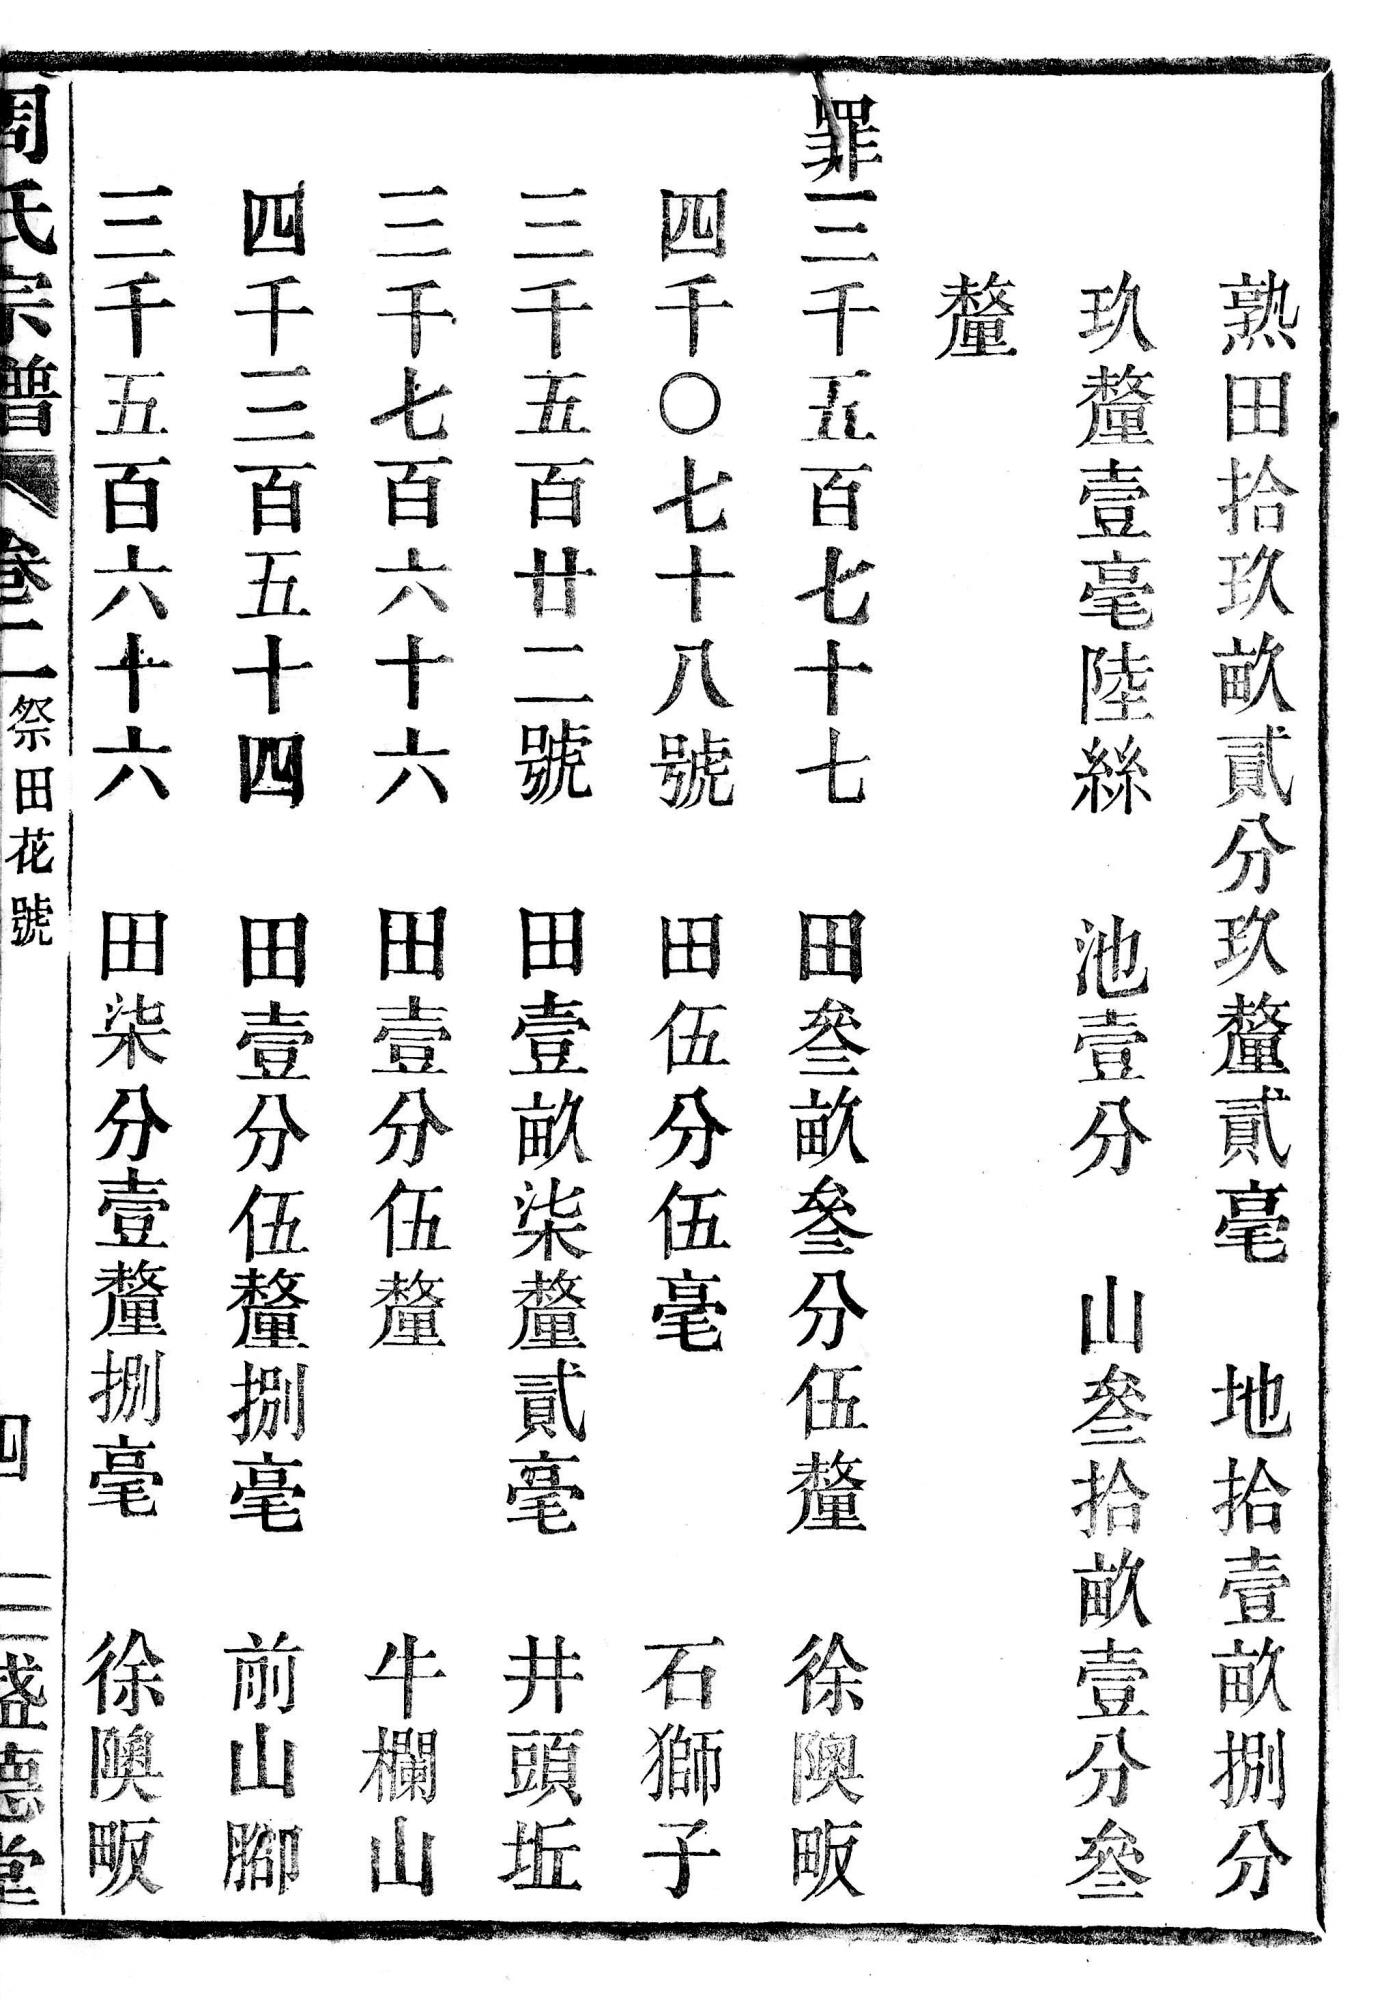 熟田拾玖畝貳分玖釐貳毫　地拾壹畝捌分
玖釐壹毫陸絲　池壹分　山叄拾畝壹分叄
釐
罪三千五百七十七　田叄畝叄分伍釐　徐隩畈
四千〇七十八號　田伍分伍毫　石獅子
三千五百廿二號　田壹畝柒釐貳毫　井頭坵
三千七百六十六　田壹分伍釐　牛欄山
四千三百五十四　田壹分伍釐捌毫　前山腳
三千五百六十六　田柒分壹釐捌毫　徐隩畈
周氏宗譜　卷二　祭田花號　四　盛德堂